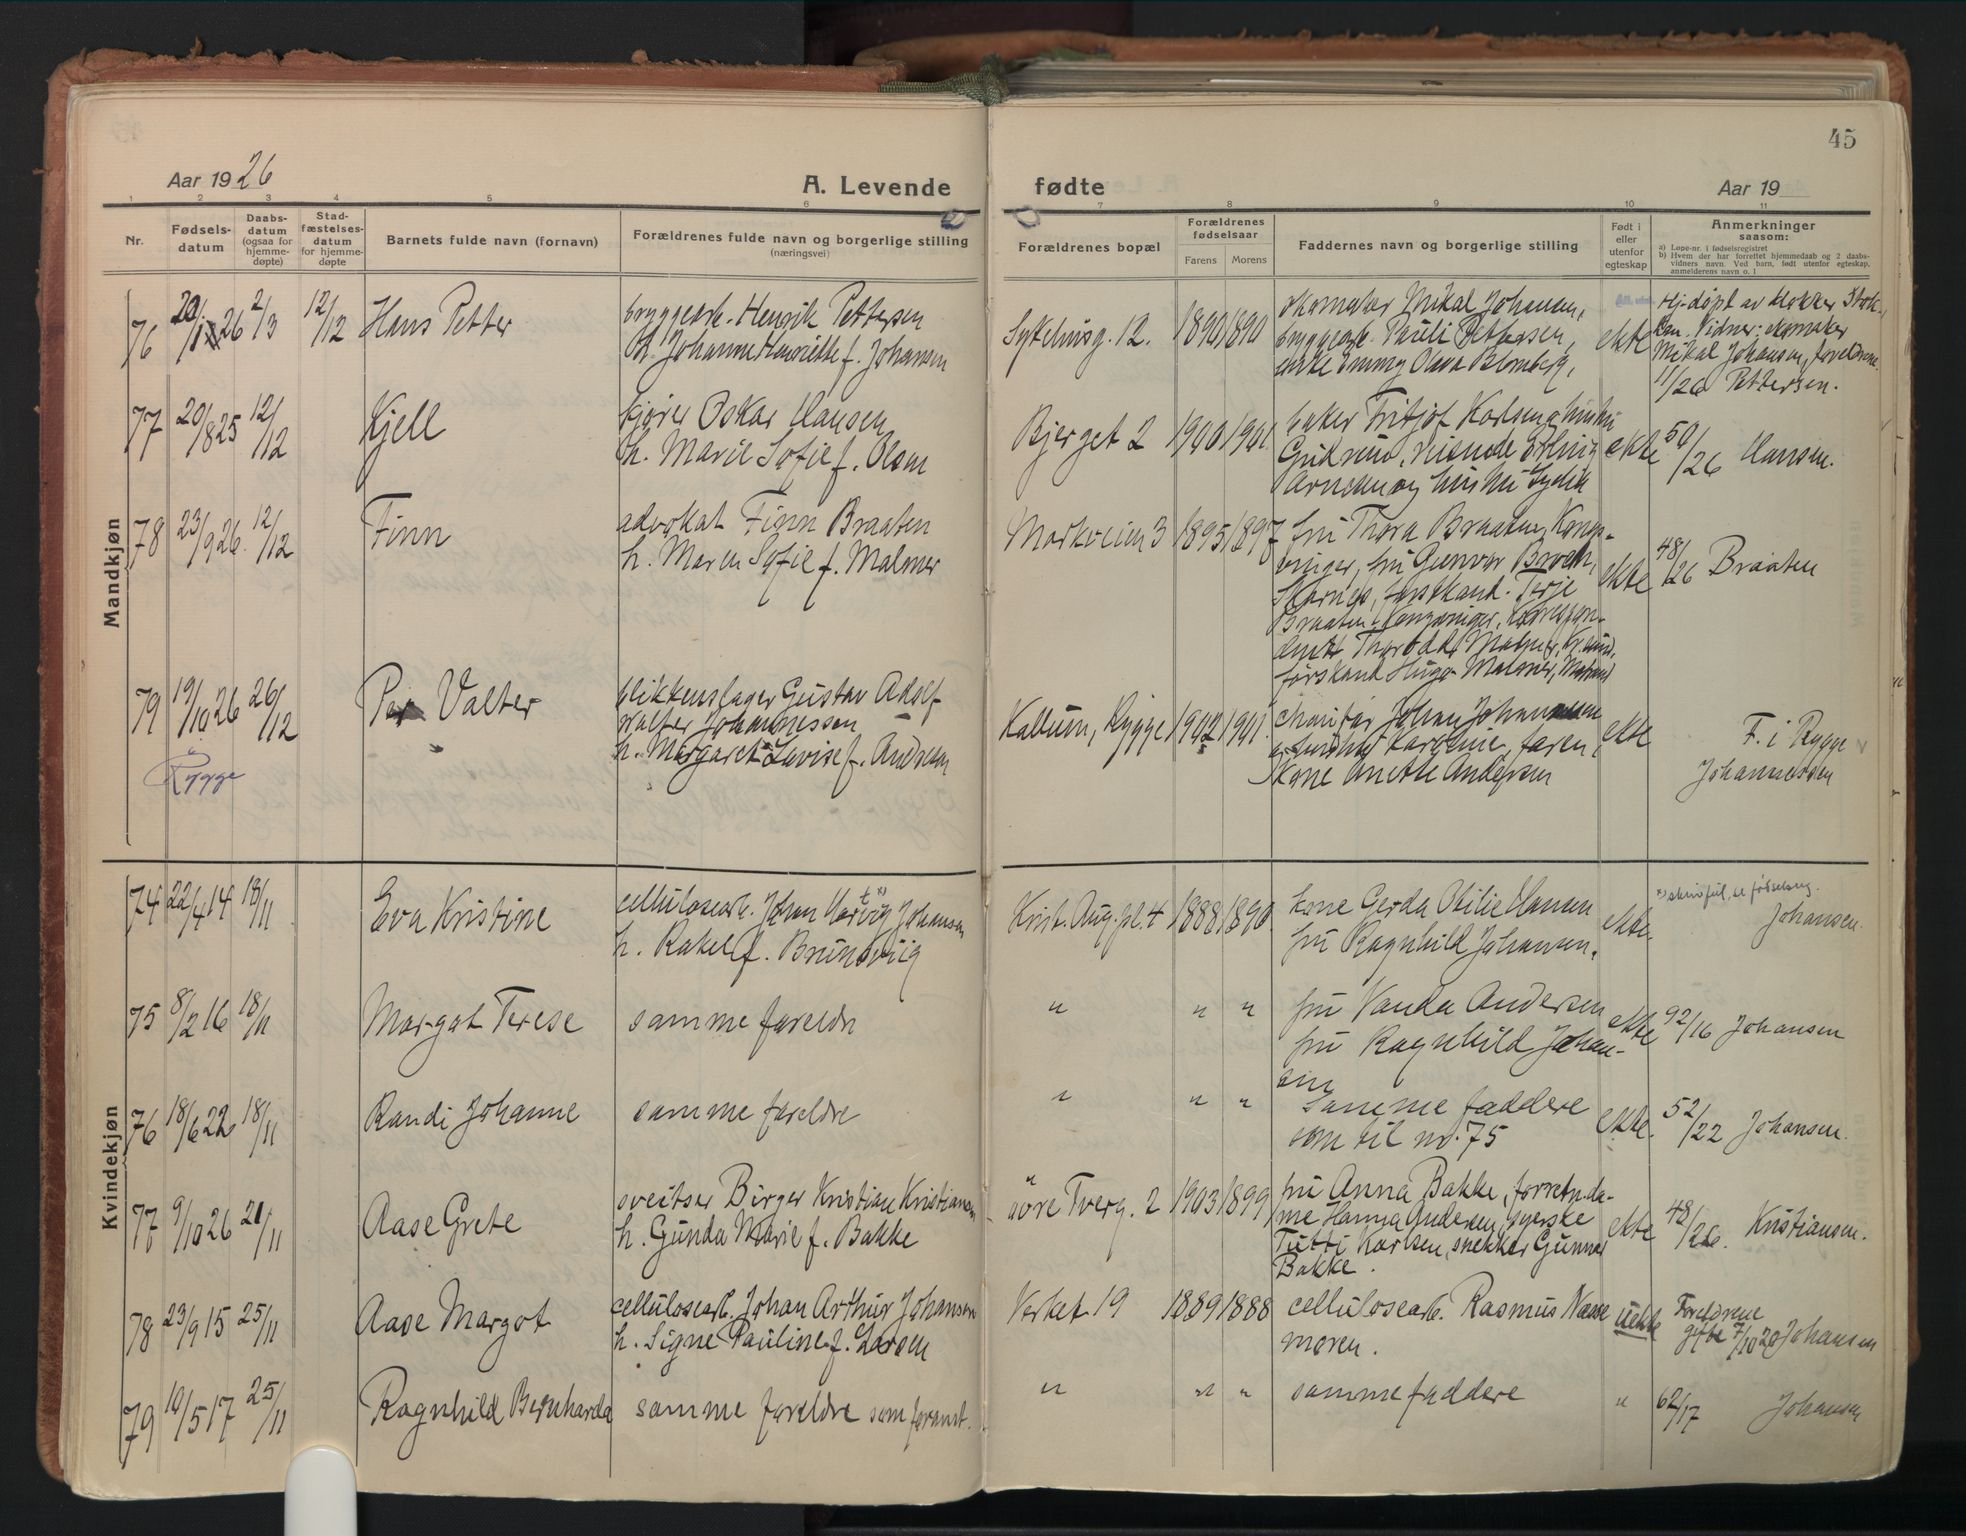 45
Aar 1926
A. Levende
fødte
Aar 19
1 2 3 4 5 6 7 8 9 10 11
Nr.
Fødsels-
datum
Daabs-
datum
(ogsaa for
hjemme-
døpte)
Stad-
fæstelses-
datum
for hjemme-
døpte
Barnets fulde navn (fornavn)
Forældrenes fulde navn og borgerlige stilling
(næringsvei)
Forældrenes bopæl
Forældrenes
fødselsaar
Farens
Morens
Faddernes navn og borgerlige stilling
Født i
eller
utenfor
egteskap
Anmerkninger
saasom:
a) Løpe-nr. i fødselsregistret
b) Hvem der har forrettet hjemmedaab og 2 daabs-
vidners navn. Ved barn, født utenfor egteskap,
anmelderens navn o. l
Mandkjøn
76 20/1 26 2/3 12/12 Hans Petter
bryggearb. Henrik Pettersen
h. Johanne Henriette f. Johansen
Sykehusg. 12. 1890 1890
skomaker Mikal Johansen,
bryggearb. Pauli Pettersen,
enke Emmy Olava Blomberg,
ekte
Hj.døpt av klokker Stok-
ken. Vidner: skomaker
Mikal Johansen, foreldrene.
11/26 Pettersen.
77 20/8 25 12/12 Kjell
kjører Oskar Hansen
h. Marie Sofie f. Olsen
Bjerget 2 1900 1901
baker Fritjof Karlsen og hustru
Gudrun, reisende Erling
Arnesen og hustru Lydia
ekte
50/26 Hansen.
78 23/9 26. 12/12 Finn
advokat Finn Braaten
h. Maren Sofie f. Malmer
Markveien 3 1895 1897
fru Thora Braaten, Kongs-
vinger, fru Gunvor Broch,
Skarnes, forstkand. Terje
Braaten, Kongsvinger, korrespon-
dent Thorodd Malmer, Kr.sund,
forstkand Hugo Malmer,
ekte
48/26 Braaten
79 19/10 26 26/12 Per Valter
blikkenslager Gustav Adolf
Walter Johannessen
h. Margaret Lovise f. Andresen
Kallum, Rygge 1902 1901.
chauffør Johan Johannessen
Karoline, faren,
kone Anette Andersen
ekte
F. i Rygge
Johannessen
Rygge
Kvindekjøn
74 22/4 14 18/11 Eva Kristine
cellulosearb. Johan Hartvig x) Johansen
h. Rakel f. Brunsvig
Krist. Aug. pl. 4 1888 1890
kone Gerda Otilie Hansen
fru Ragnhild Johansen.
ekte.
x) skrivfeil, se fødselsreg.
Johansen.
75 8/2 16 18/11 Margot Terese samme foreldre
" " "
fru Vanda Andersen
fru Ragnhild Johan-
sen
ekte
92/16 Johansen
76 18/6 22 18/11 Randi Johanne samme foreldre
" " "
Samme faddere
som til nr. 75
ekte.
52/22 Johansen.
77 9/10 26 21/11 Aase Grete
sveitser Birger Kristian Kristiansen
h. Gunda Marie f. Bakke
Søre Tverg. 2 1903 1899
fru Anna Bakke, forretn.da-
me Hanna Andersen, syerske
Tutti Karlsen, snekker Gunnar
Bakke.
ekte
48/26. Kristiansen.
78 23/9 15 25/11 Aase Margot
cellulosearb. Johan Arthur Johansen
h. Signe Pauline f. Larsen
Verket 19 1889 1888
cellulosearb. Rasmus Næsse
moren.
uekte
Foreldrene
gifte 7/10 20 Johansen
79 10/5 17 25/11 Ragnhild Bernharda samme foreldre som foranst.
" " "
samme faddere
"
62/17 Johansen